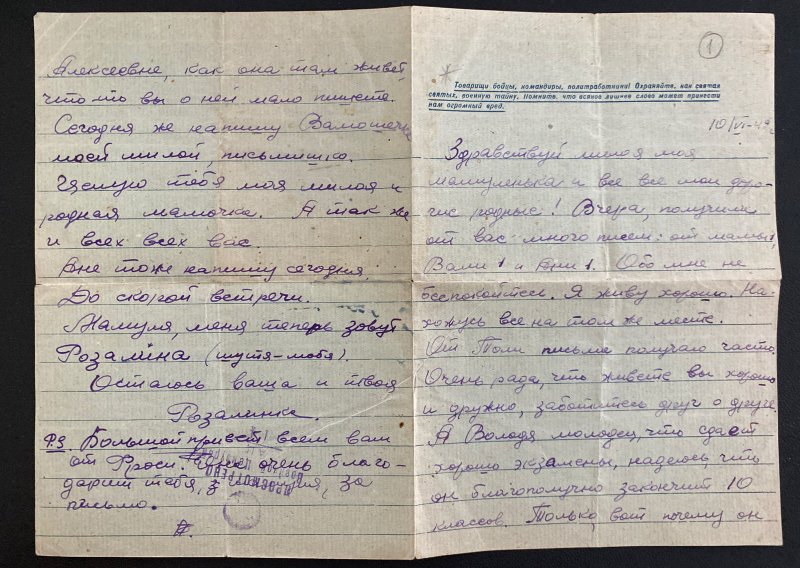 1
Товарищи бойцы, командиры, политработники! Охраняйте, как святая
святых, военную тайну. Помните, что всякое лишнее слово может принести
нам огромный вред.
10/VI-4
Здравствуй милая моя
мамуленька и все все мои доро-
гие родные! Вчера, получила
от вас много писем: от мамы 1,
Вали 1 и Ани 1. Обо мне не
беспокойтесь. Я живу хорошо. На-
хожусь все на том же месте.
От Толи письма получаю часто.
Очень рада, что живете вы хорошо
и дружно, заботитесь друг о друге.
А Володя молодец, что сдает
хорошо экзамены, надеюсь, что
он благополучно закончит 10
классов. Только, вот почему он
Алексеевне, как она там живет,
что-то вы о ней мало пишете.
Сегодня же напишу Валюшечке
моей милой, письмишко.
Целую тебя моя милая и
родная мамочка. А так же
и всех всех вас.
Ане тоже напишу сегодня.
До скорой встречи.
Мамуля, меня теперь зовут
Розалина (шутя-любя).
Осталась ваша и твоя
Розалинка.
P.S. Большой привет всем вам
от Фроси. очень благо-
дарит тебя, за
письмо.
ПРОСМОТРЕНО